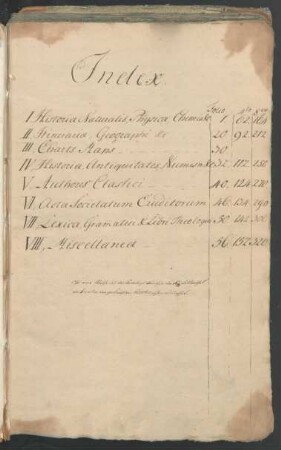 Index
Folia 4to 8vo
I Historia Naturalis, Physica, Chemica 1 62 164
II Itineraria, Geographi &c 20 92 212
III Chartæ Rar. 30
IV Historia Antiquitates, Numism. 32 112 250
V Authores Classici 40 124 270
VI Acta Societatum Eruditorum 46 134 290
VII Lexica, Gramatici & Libri Theologici 50 142 300
VIII, Miscellanea 56 152 320